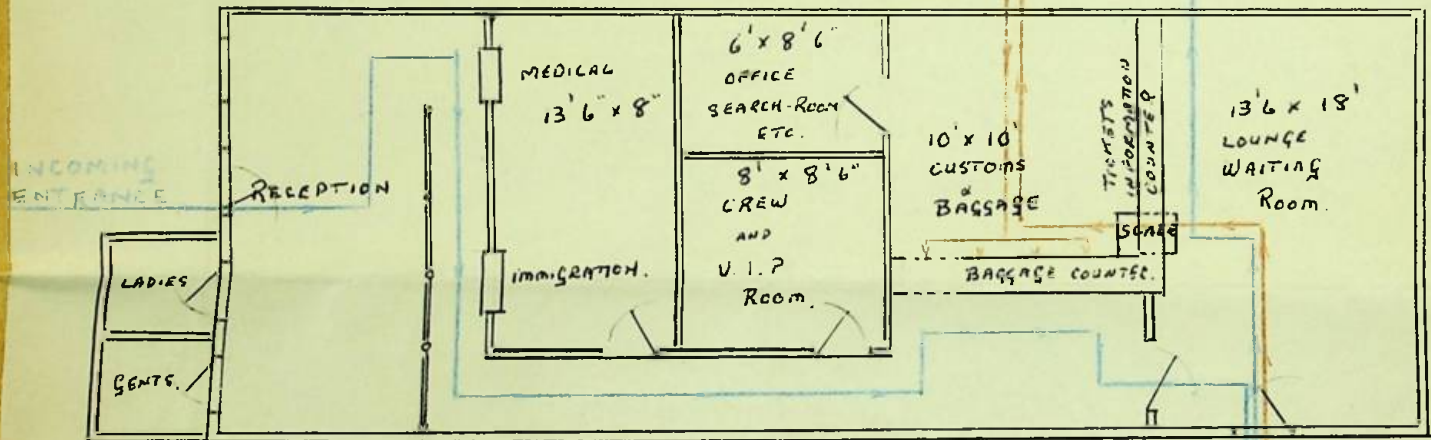 INCOMING
ENTRANCE
RECEPTION
LADIES
GENTS.
MEDICAL
13' 6" x 8"
IMMIGRATION.
6' x 8' 6"
OFFICE
SEARCH-ROOM
ETC.
8' x 8' 6"
CREW
AND
V. I. P
ROOM.
10' x 10'
CUSTOMS
&
BAGGAGE
TICKETS
INFORMATION
COUNTER
SCALE
BAGGAGE COUNTER.
13' 6 x 18'
LOUNGE
WAITING
ROOM.